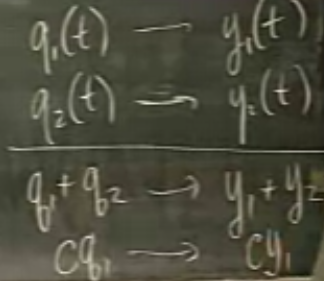 q₁(t) → y₁(t)
q₂(t) → y₂(t)
q₁+q₂ → y₁+y₂
cq₁ → cy₁